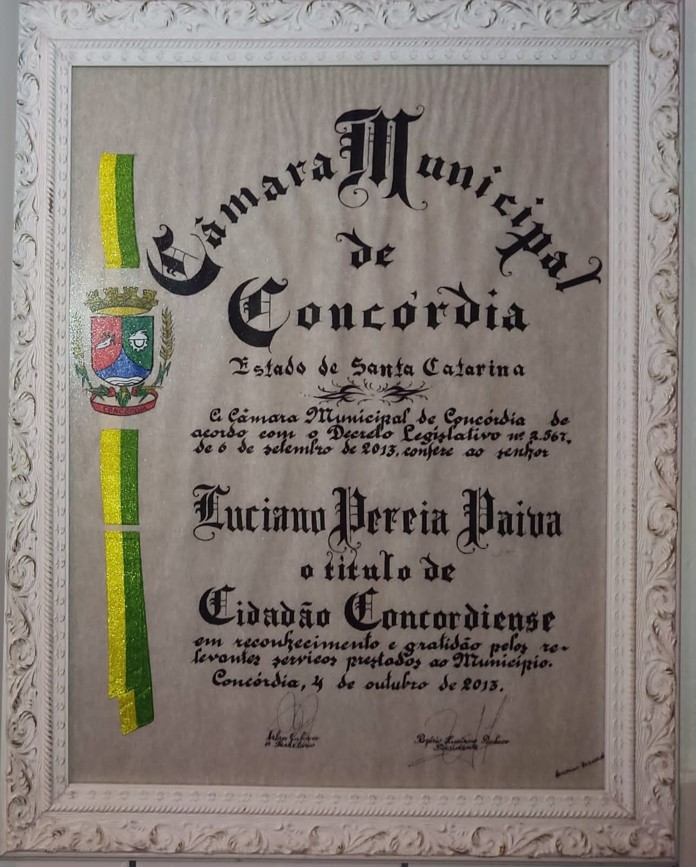 Câmara Municipal
de
Concórdia
Estado de Santa Catarina
A Câmara Municipal de Concórdia de
acordo com o Decreto Legislativo nº 2.567,
de 6 de setembro de 2013, confere ao senhor
Luciano Pereia Paiva
o título de
Cidadão Concordiense
em reconhecimento e gratidão pelos re-
levantes serviços prestados ao Município.
Concórdia, 4 de outubro de 2013.
Rogério Luciano Pacheco
Presidente
CONCÓRDIA